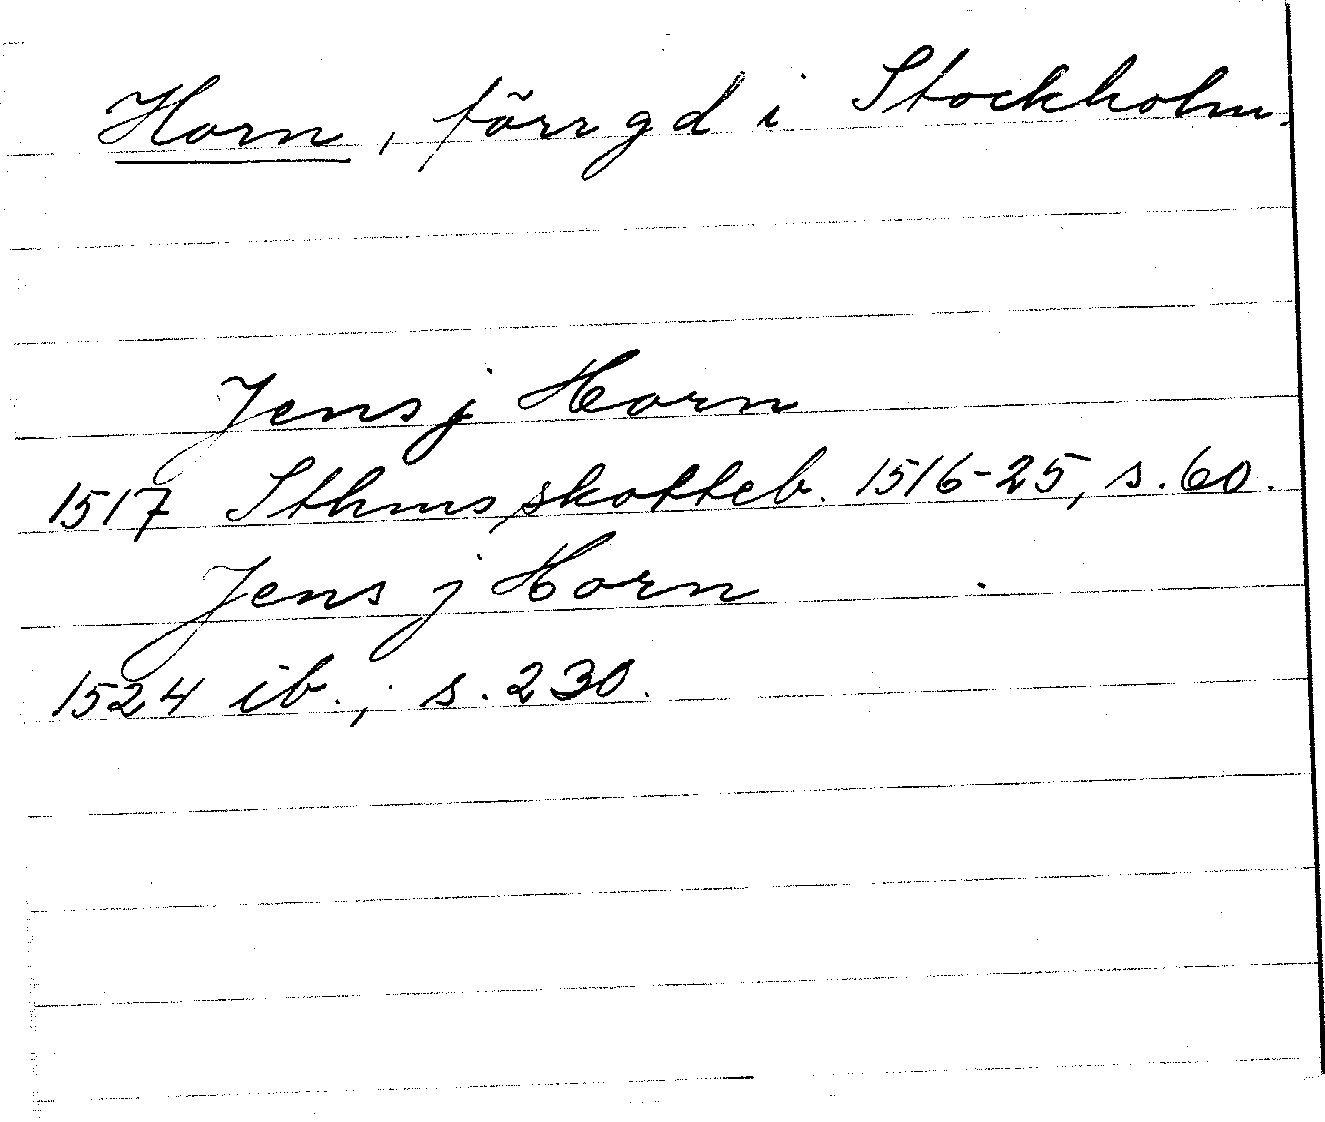 Horn, förr gd i Stockholm.
Jens j Horn
1517 Sthms skotteb. 1516-25, s. 60.
Jens j Horn
1524 ib., s. 230.